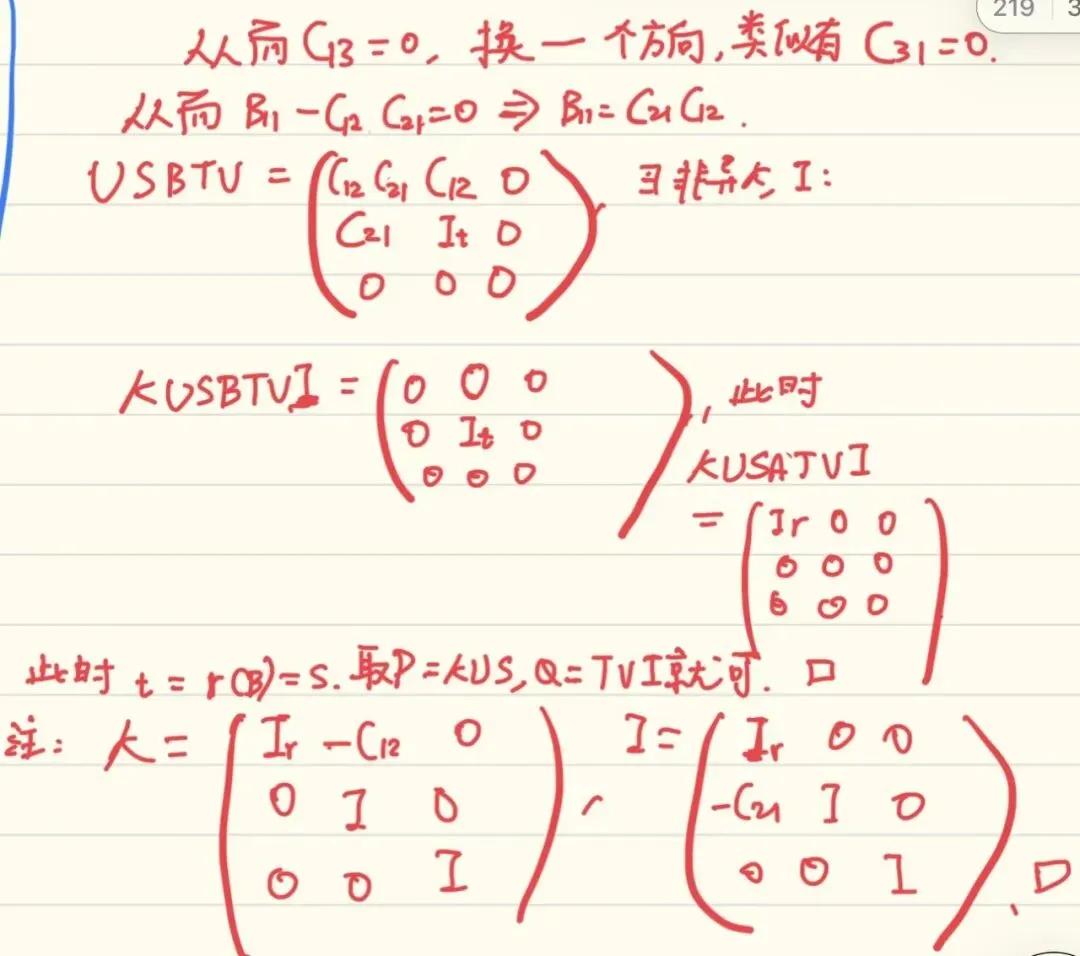 219 3
从而 C13 = 0, 换一个方向, 类似有 C31 = 0.
从而 B11 - C12 C21 = 0 ⇒ B11 = C21 C12 .
USBTV = ( C12 C21 C12 0 ), ∃非异K, I:
C21 It 0
0 0 0
KUSBTVI = ( 0 0 0 ), 此时
0 It 0
0 0 0
KUSATVI
= ( Ir 0 0 )
0 0 0
0 0 0
此时 t = r(B) = s. 取P = KUS, Q = TVI就可. □
注: K = ( Ir -C12 0 ), I = ( Ir 0 0 ).
0 I 0 -C21 I 0
0 0 I 0 0 I □